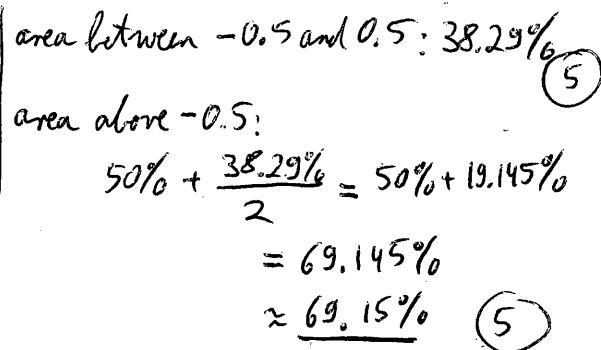 area between -0.5 and 0.5: 38.29%
5
area above -0.5:
50% + 38.29%/2 = 50% + 19.145%
= 69.145%
≈ 69.15% 5